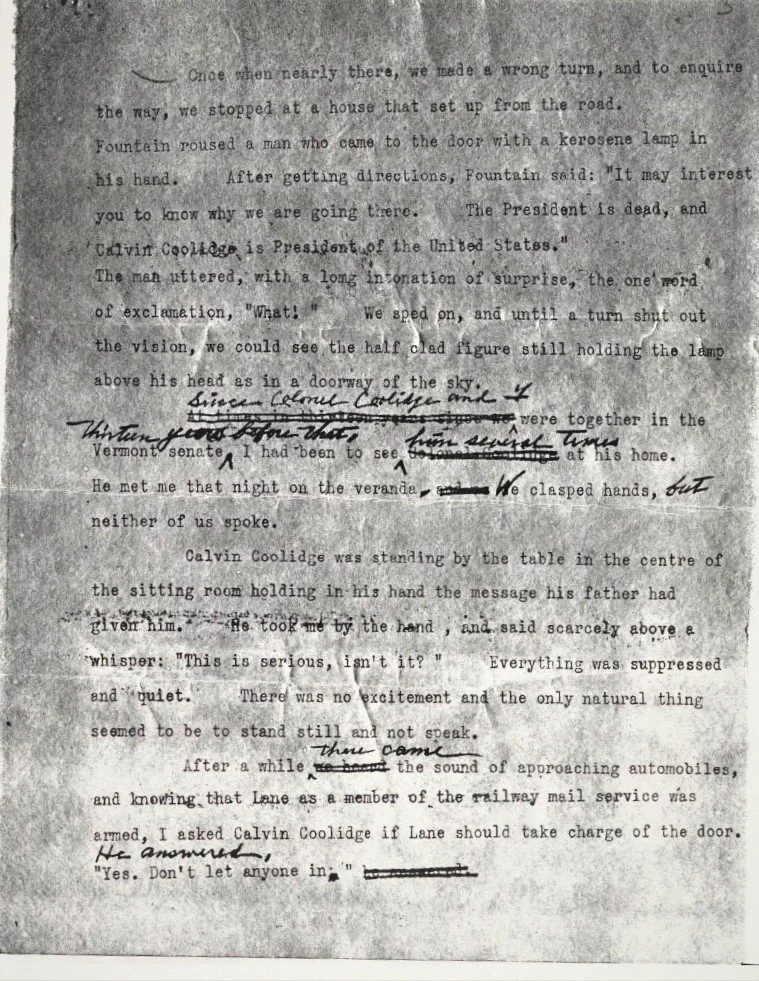 Once when nearly there, we made a wrong turn, and to enquire
the way, we stopped at a house that set up from the road.
Fountain roused a man who came to the door with a kerosene lamp in
his hand. After getting directions, Fountain said: "It may interest
you to know why we are going there. The President is dead, and
Calvin Coolidge is President of the United States."
The man uttered, with a long intonation of surprise, the one word
of exclamation, "What! " We sped on, and until a turn shut out
the vision, we could see the half clad figure still holding the lamp
above his head as in a doorway of the sky.
Since Colonel Coolidge and I
At times in thirteen years since we were together in the
thirteen years before that, him several times
Vermont senate, I had been to see Colonel Coolidge at his home.
He met me that night on the veranda, and we We clasped hands, but
neither of us spoke.
Calvin Coolidge was standing by the table in the centre of
the sitting room holding in his hand the message his father had
given him. He took me by the hand , and said scarcely above a
whisper: "This is serious, isn't it? " Everything was suppressed
and quiet. There was no excitement and the only natural thing
seemed to be to stand still and not speak.
there came
After a while we heard the sound of approaching automobiles,
and knowing that Lane as a member of the railway mail service was
armed, I asked Calvin Coolidge if Lane should take charge of the door.
He answered,
"Yes. Don't let anyone in." he answered.